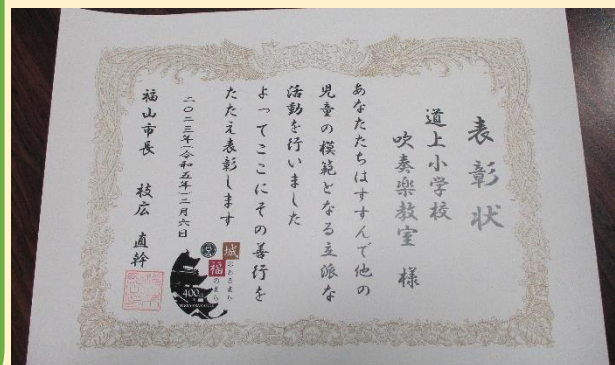 表彰状
道上小学校
吹奏楽教室 様
あなたたちはすすんで他の
児童の模範となる立派な
活動を行いました
よってここにその善行を
たたえ表彰します
二〇二三年(令和五年)二月六日
福山市長 枝広 直幹
城
のあるまち
福
のまち
400